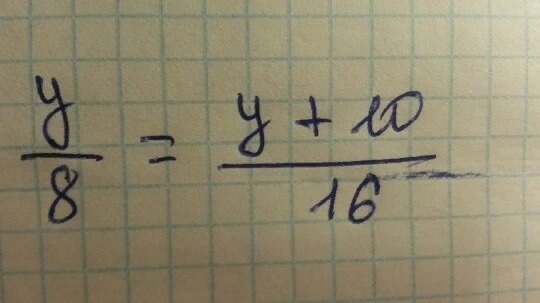 y/8 = (y + 10)/16